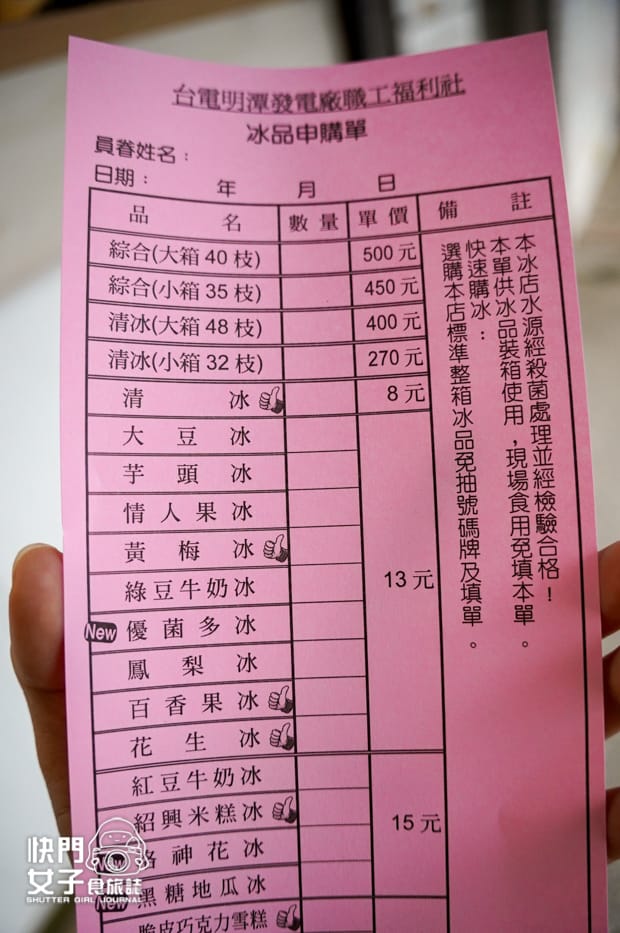 台電明潭發電廠職工福利社
冰品申購單
員眷姓名：
日期： 年 月 日
品 名 數量 單價 備 註
綜合(大箱40枝) 500元
綜合(小箱35枝) 450元
清冰(大箱48枝) 400元
清冰(小箱32枝) 270元
清 冰 8元
大豆冰
芋頭冰
情人果冰
黃梅冰
綠豆牛奶冰 13元
New 優菌多冰
鳳梨冰
百香果冰
花生冰
紅豆牛奶冰
紹興米糕冰 15元
洛神花冰
New 黑糖地瓜冰
脆皮巧克力雪糕
本冰店水源經殺菌處理並經檢驗合格！
本單供冰品裝箱使用，現場食用免填本單。
快速購冰：
選購本店標準整箱冰品免抽號碼牌及填單。
快門
女子食旅誌
SHUTTER GIRL JOURNAL